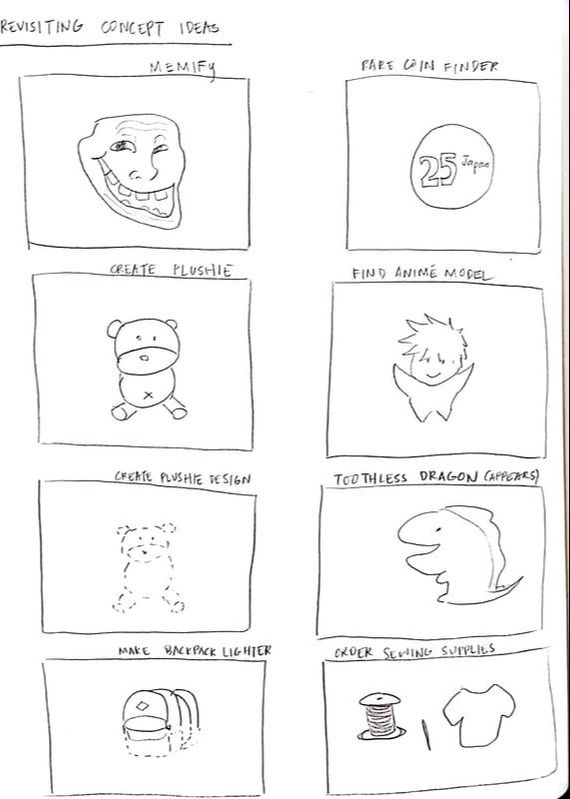 REVISITING CONCEPT IDEAS
MEMIFY
RARE COIN FINDER
25 Japan
CREATE PLUSHIE
FIND ANIMÉ MODEL
CREATE PLUSHIE DESIGN
TOOTHLESS DRAGON (APPEARS)
MAKE BACKPACK LIGHTER
ORDER SEWING SUPPLIES